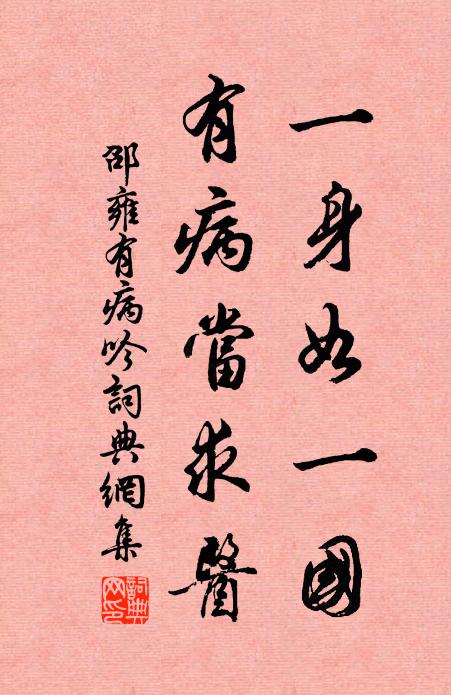 一身如一國
有病當求醫
邵雍有病吟詞典網集
詞典網印